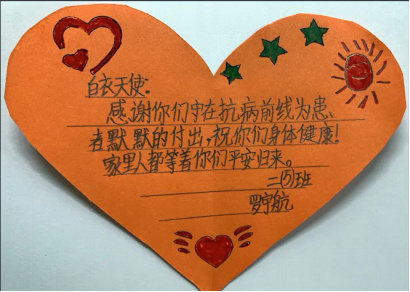 白衣天使:
感谢你们守在抗病前线为患
者默默的付出,祝你们身体健康!
家里人都等着你们平安归来。
二(5)班
罗宇航